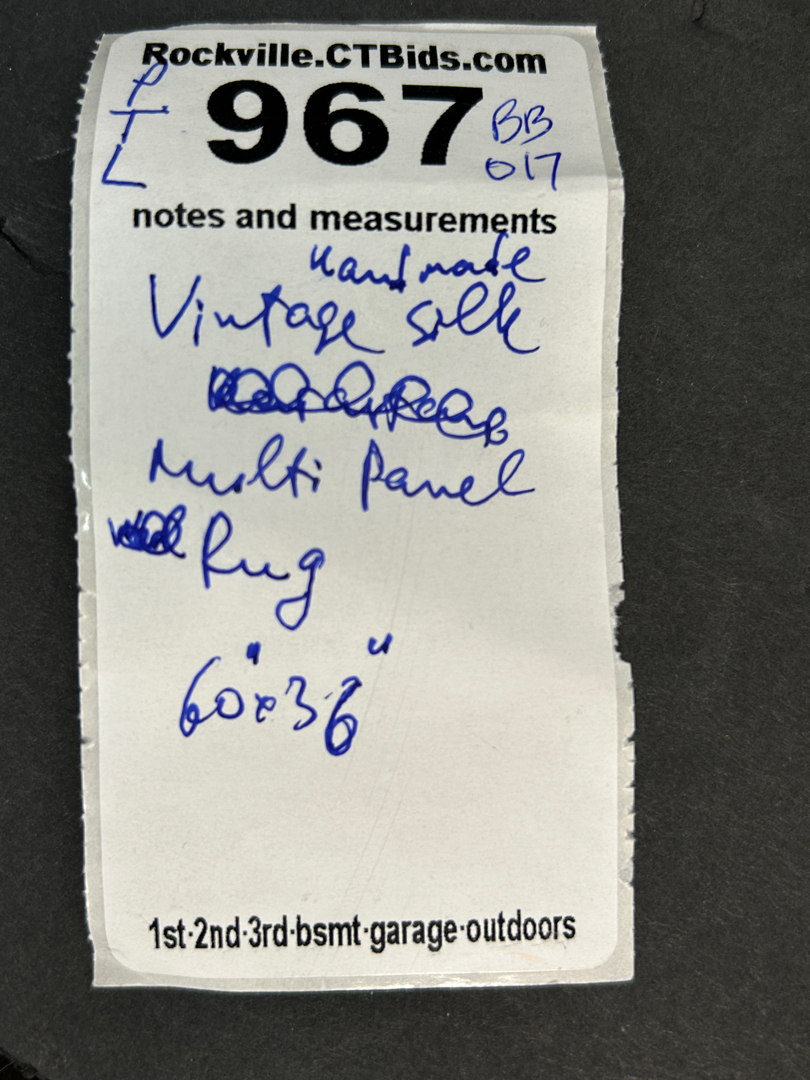 Rockville.CTBids.com
PTL
967
BB
017
notes and measurements
Handmade
Vintage silk
Multi Panel
Rug
60"x36"
1st·2nd·3rd·bsmt·garage·outdoors